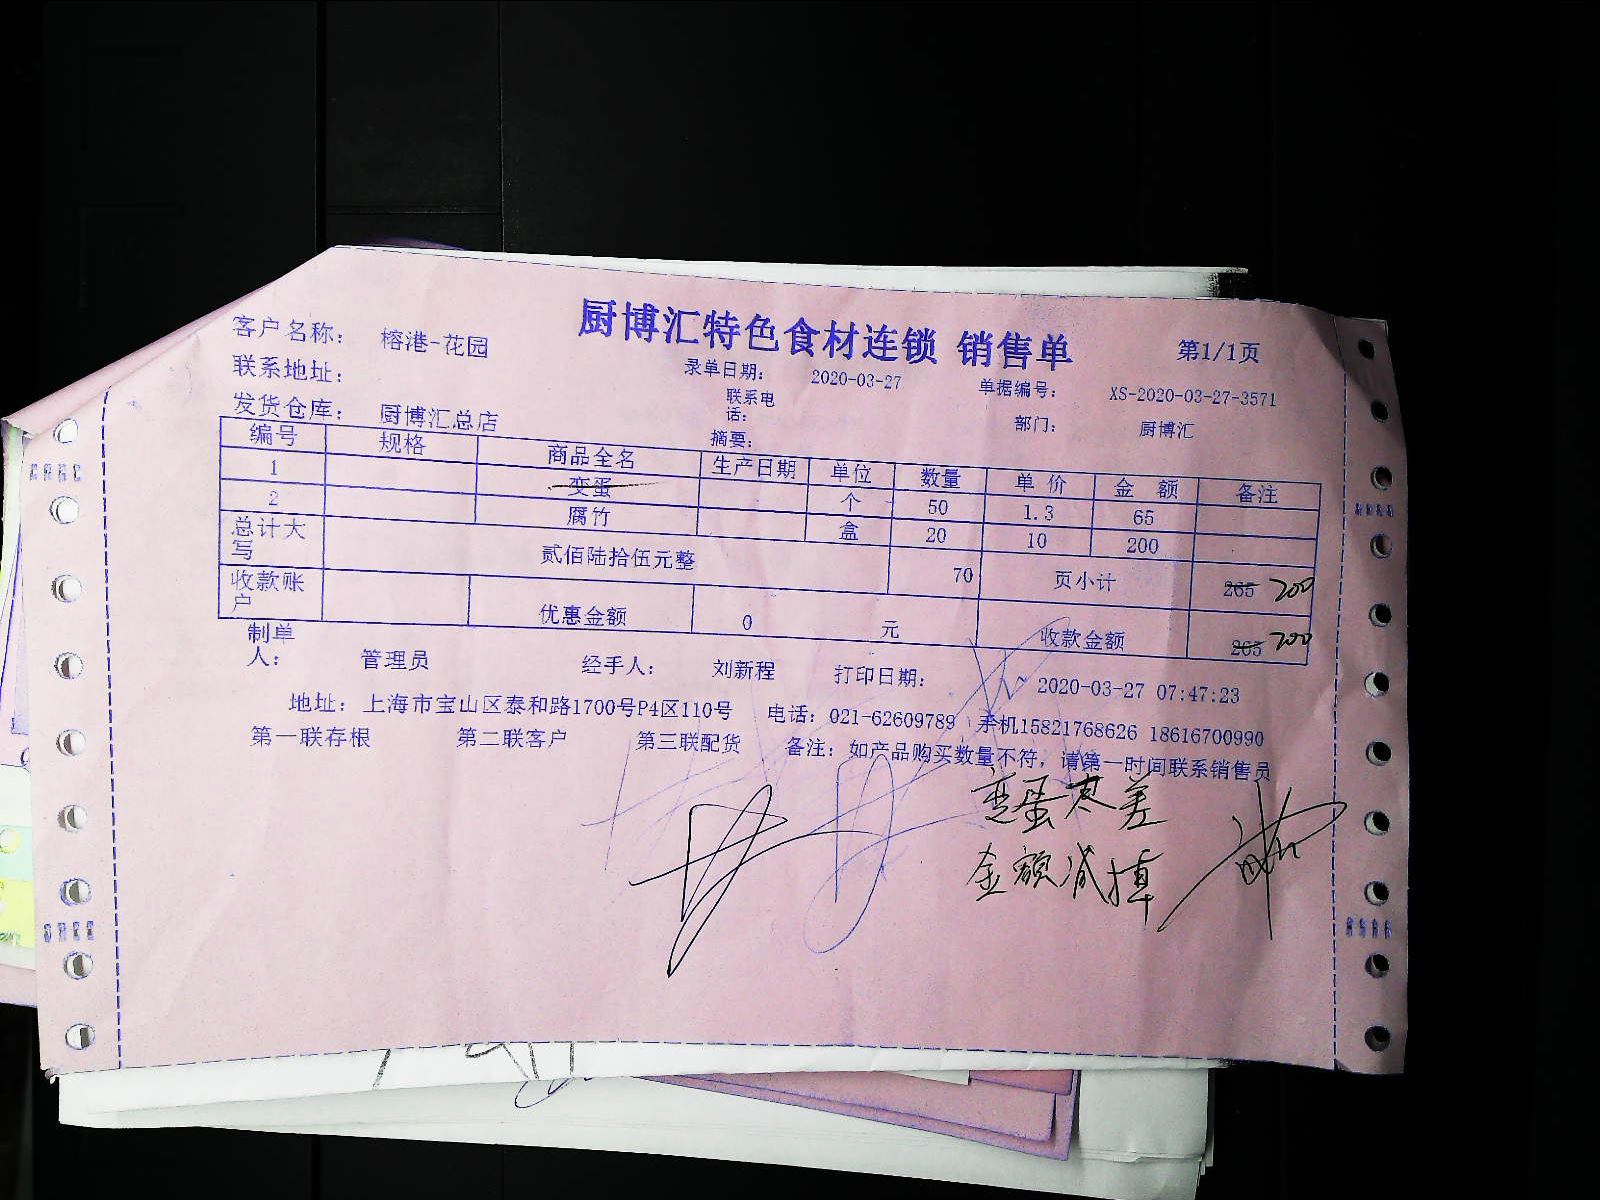 厨博汇特色食材连锁 销售单
第1/1页
客户名称： 榕港-花园
录单日期： 2020-03-27 单据编号： XS-2020-03-27-3571
联系地址：
联系电话：
部门： 厨博汇
发货仓库： 厨博汇总店
摘要：
编号 规格 商品全名 生产日期 单位 数量 单价 金额 备注
1 变蛋 个 50 1.3 65
2 腐竹 盒 20 10 200
总计大写 贰佰陆拾伍元整 70 页小计 265 200
收款账户 优惠金额 0 元 收款金额 265 200
制单人： 管理员 经手人： 刘新程 打印日期： 2020-03-27 07:47:23
地址：上海市宝山区泰和路1700号P4区110号 电话：021-62609789 手机15821768626 18616700990
第一联存根 第二联客户 第三联配货 备注：如产品购买数量不符，请第一时间联系销售员
变蛋枣差
金额减掉